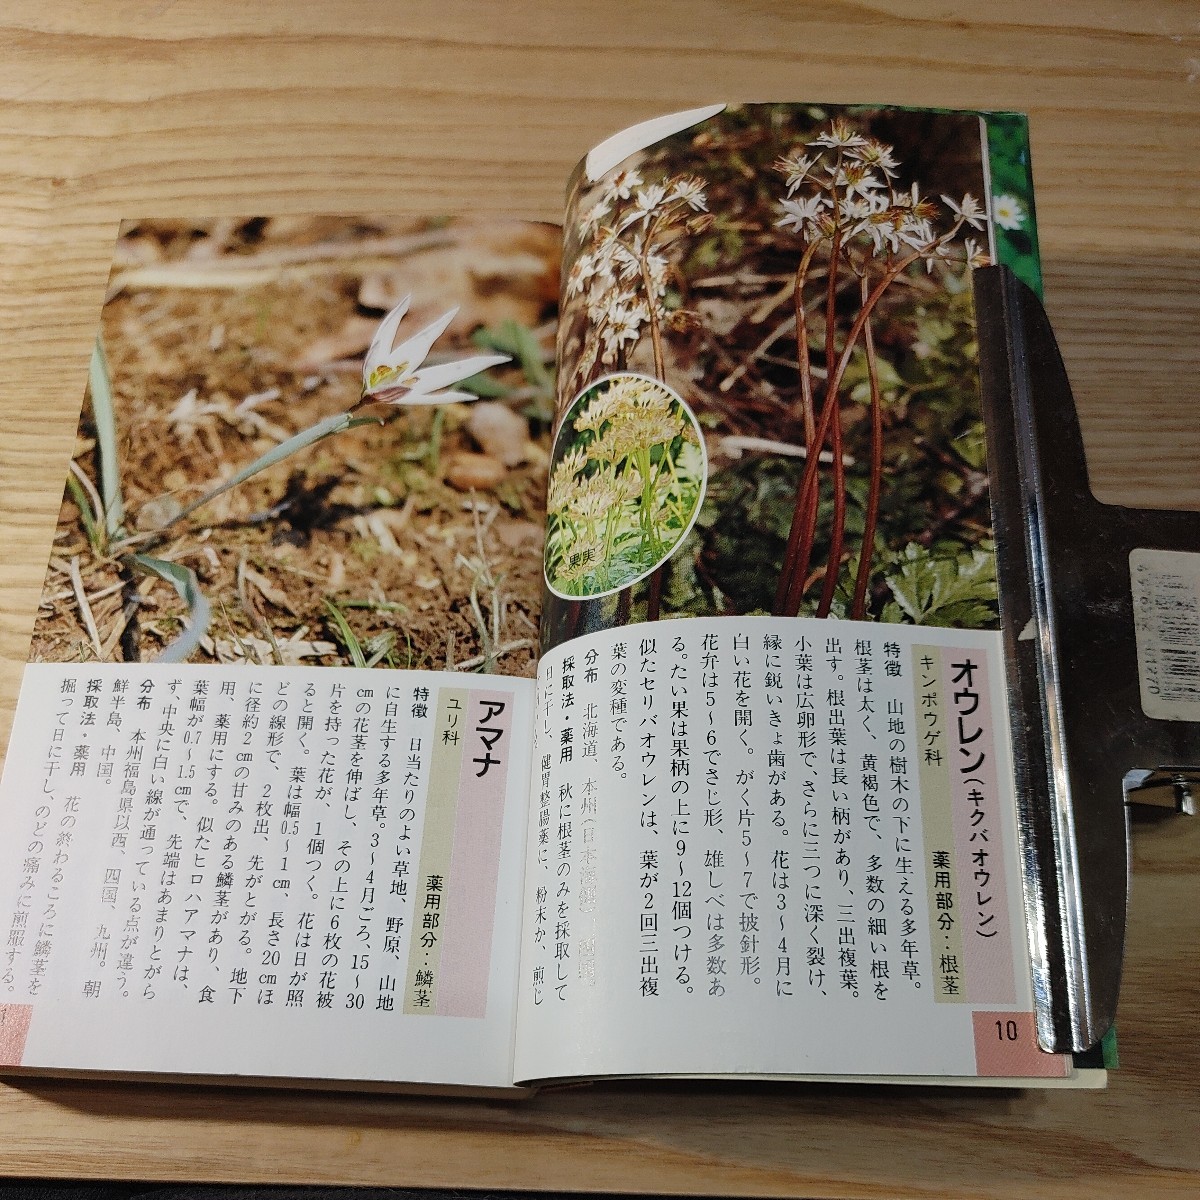 オウレン(キクバオウレン)
キンポウゲ科
薬用部分‥根茎
特徴 山地の樹木の下に生える多年草。
根茎は太く、黄褐色で、多数の細い根を
出す。根出葉は長い柄があり、三出複葉。
小葉は広卵形で、さらに三つに深く裂け、
縁に鋭いきょ歯がある。花は3〜4月に
白い花を開く。がく片5〜7で披針形。
花弁は5〜6でさじ形、雄しべは多数あ
る。たい果は果柄の上に9〜12個つける。
似たセリバオウレンは、葉が2回三出複
葉の変種である。
分布 北海道、本州(日本海側)
採取法・薬用 秋に根茎のみを採取して
日に干し、健胃整腸薬に、粉末か、煎じ
果実
10
アマナ
ユリ科
薬用部分‥鱗茎
特徴 日当たりのよい草地、野原、山地
に自生する多年草。3〜4月ごろ、15〜30
cmの花茎を伸ばし、その上に6枚の花被
片を持った花が、1個つく。花は日が照
ると開く。葉は幅0.5〜1cm、長さ20cmほ
どの線形で、2枚出、先がとがる。地下
に径約2cmの甘みのある鱗茎があり、食
用、薬用にする。似たヒロハアマナは、
葉幅が0.7〜1.5cmで、先端はあまりとがら
ず、中央に白い線が通っている点が違う。
分布 本州福島県以西、四国、九州。朝
鮮半島、中国。
採取法・薬用 花の終わるころに鱗茎を
掘って日に干し、のどの痛みに煎服する。